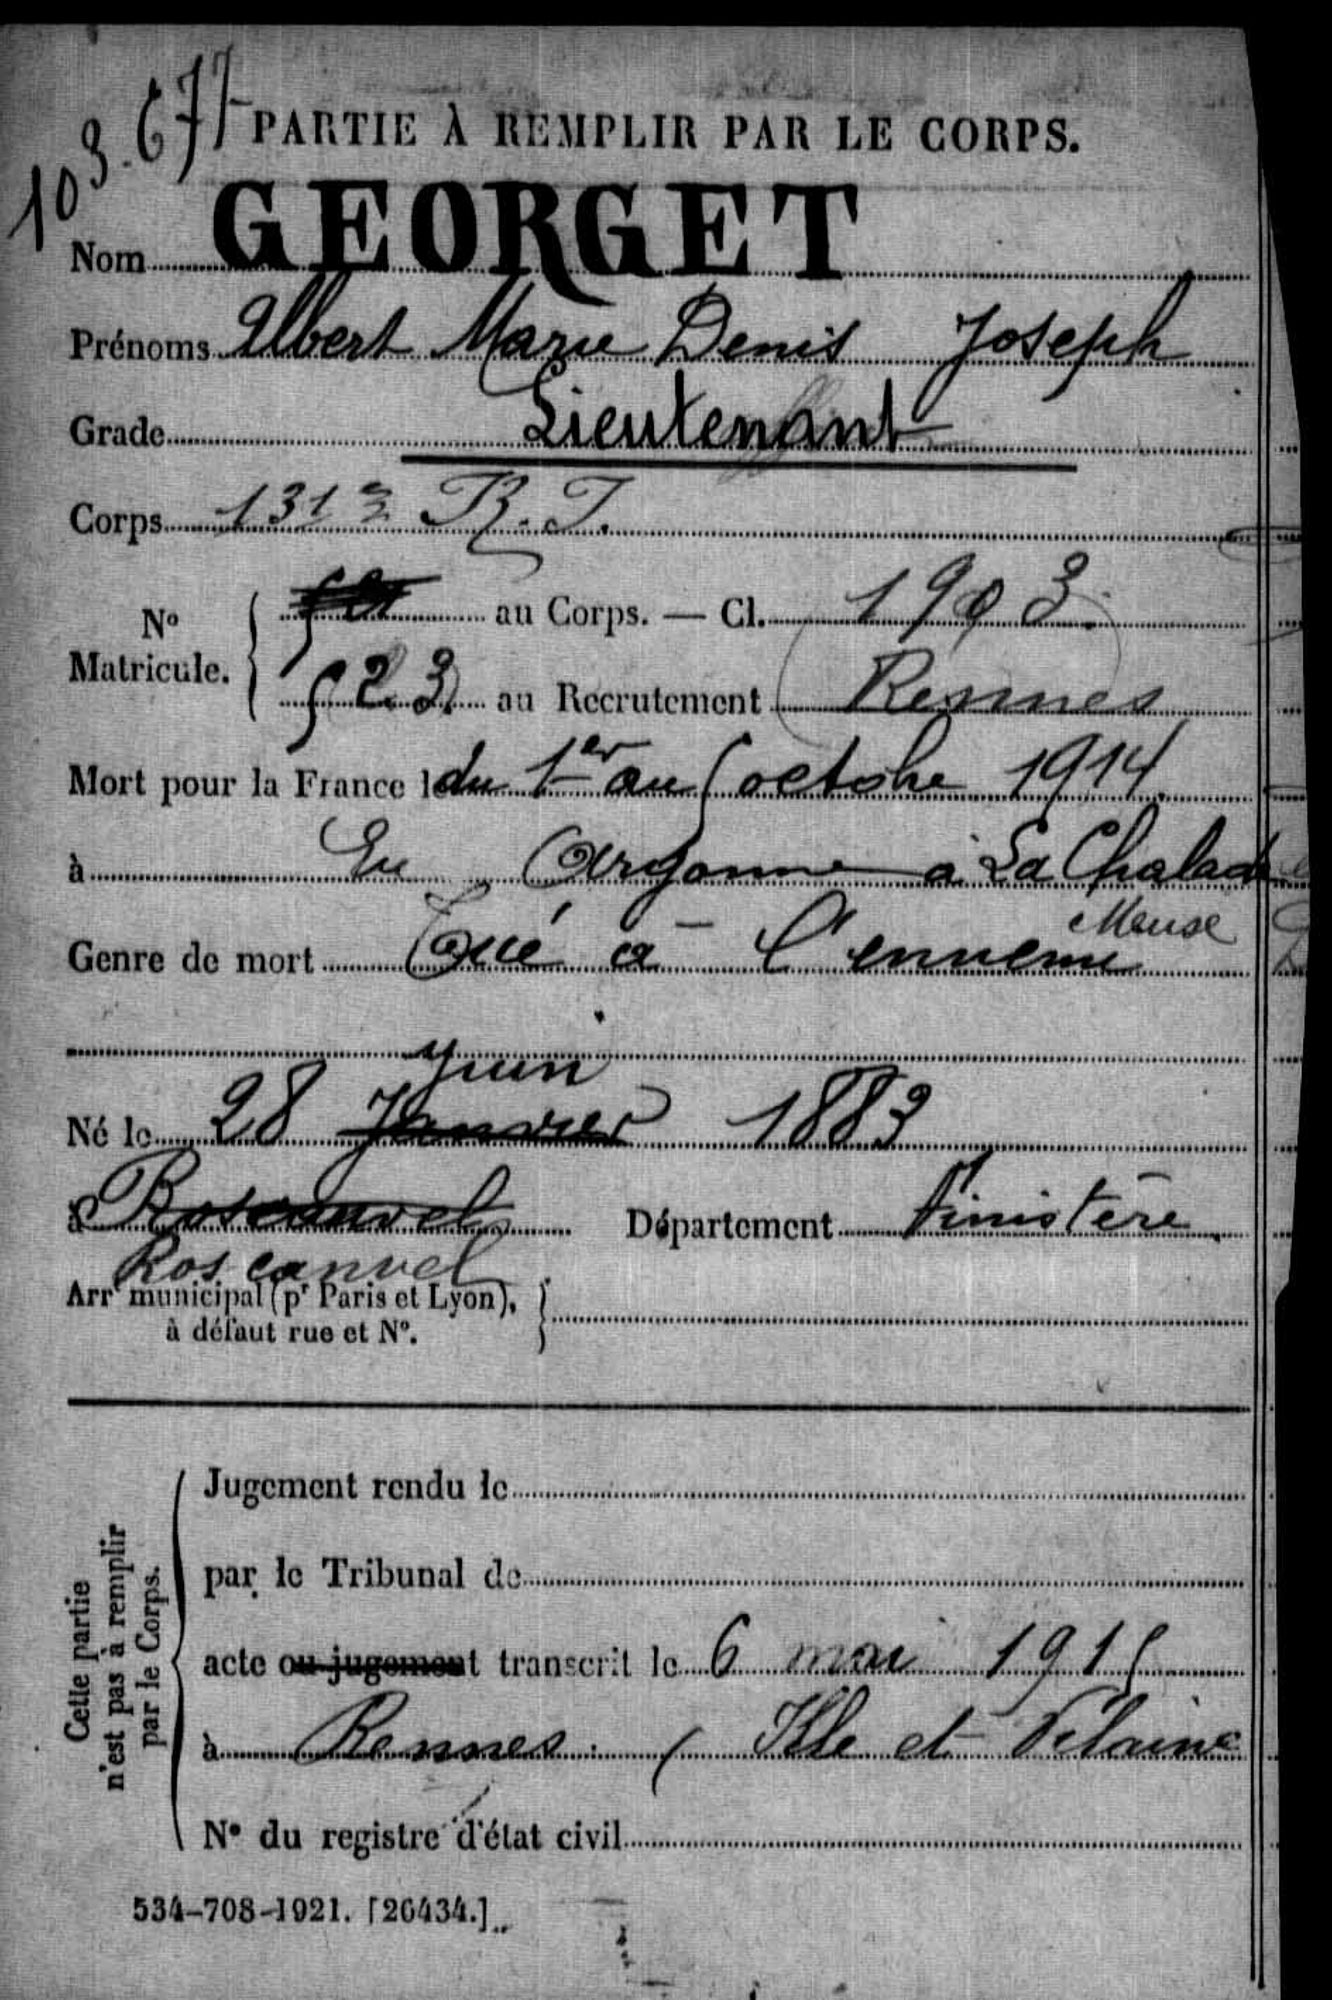 103.677
PARTIE À REMPLIR PAR LE CORPS.
Nom GEORGET
Prénoms Albert Marie Denis Joseph
Grade Lieutenant
Corps 131e R.I.
No Matricule. { au Corps. — Cl. 1903.
523 au Recrutement Rennes
Mort pour la France le du 1er au 5 octobre 1914.
à En Argonne à La Chalade
Meuse
Genre de mort Tué à l'ennemi
juin
Né le 28 Janvier 1883
à Roscanvel Département Finistère
Roscanvel
Arrt municipal (pr Paris et Lyon), }
à défaut rue et No.
Cette partie
n'est pas à remplir
par le Corps.
Jugement rendu le
par le Tribunal de
acte ou jugement transcrit le 6 mai 1915
à Rennes. ( Ille et Vilaine
No du registre d'état civil
534-708-1921. [26434.]